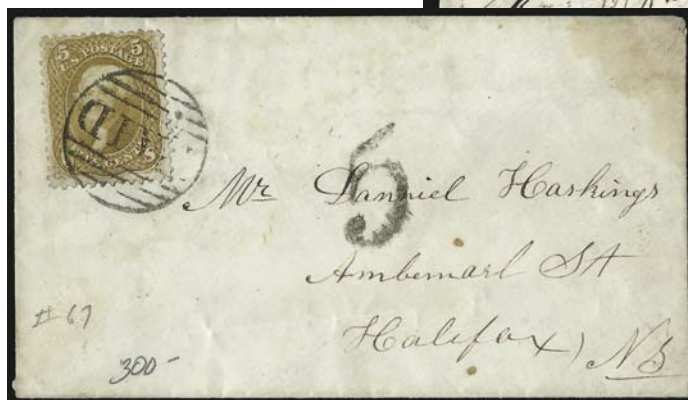 5 U.S. POSTAGE 5
PAID
5
Mr Danniel Haskings
Ambemarl St
Halifax, NS
# 67
300-